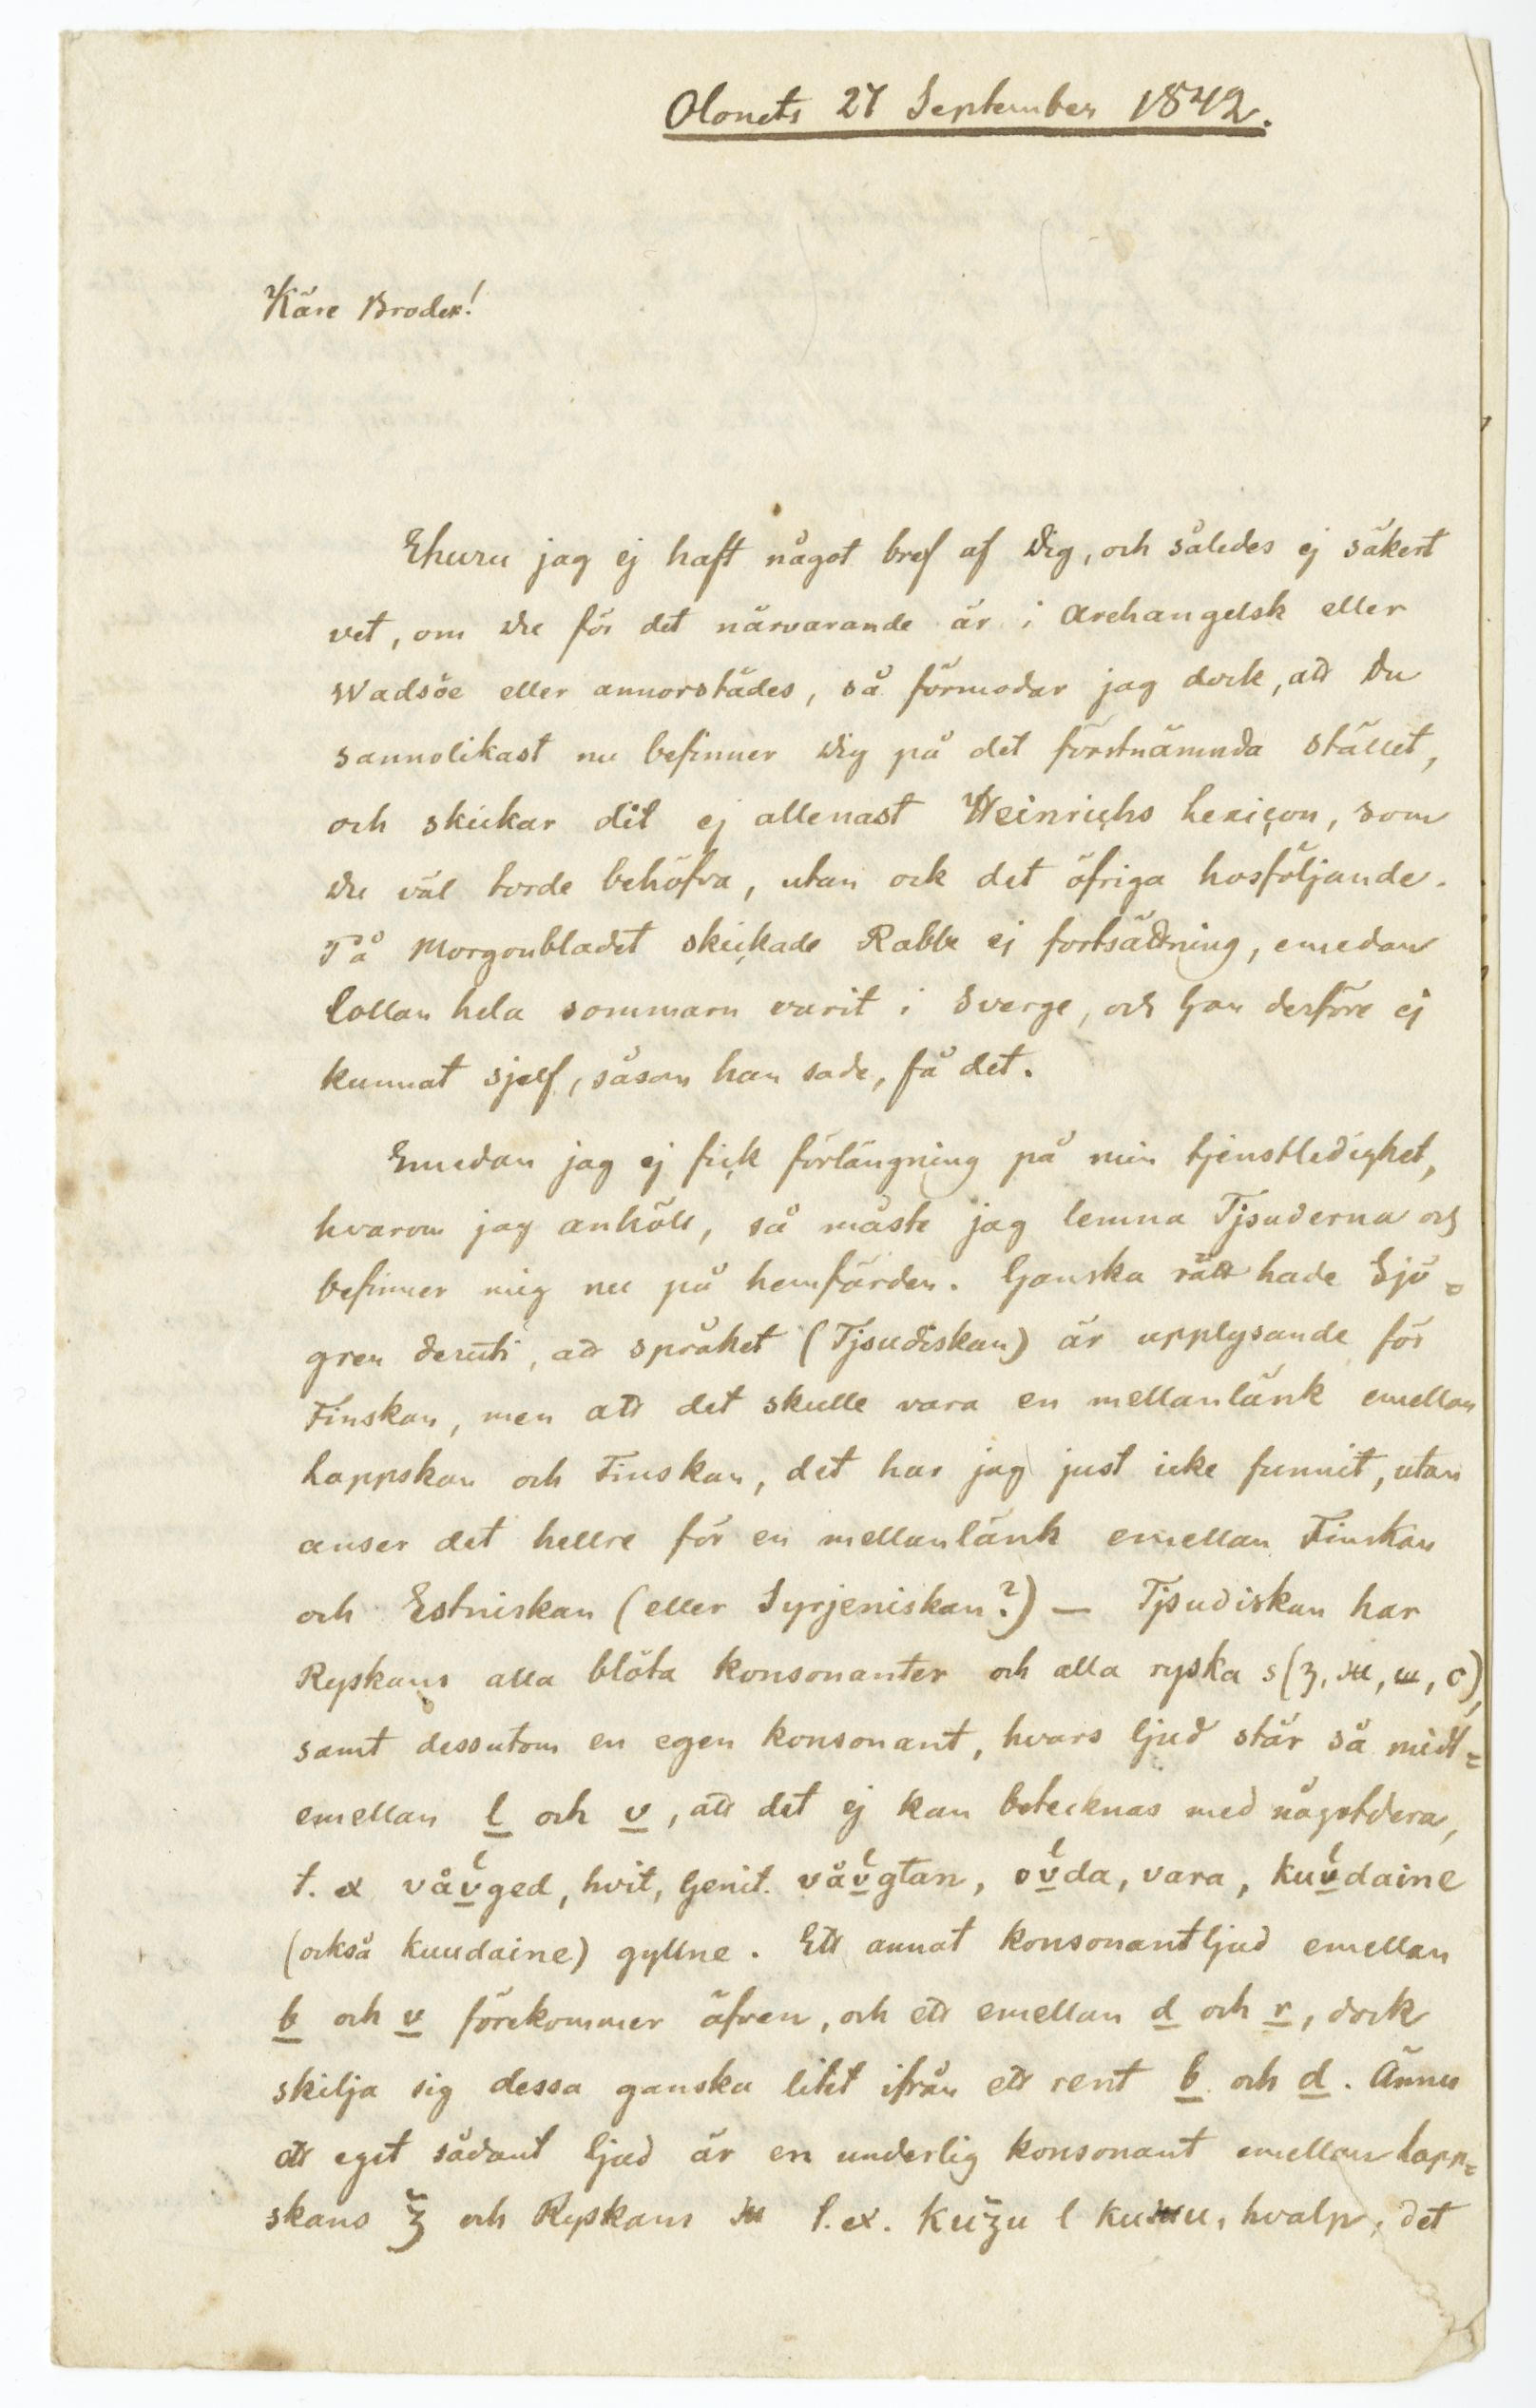 Olonets 27 September 1842.
Käre Broder!
Ehuru jag ej haft något bref af Dig, och således ej säkert
vet, om Du för det närvarande är i Archangelsk eller
Wadsöe eller annorstädes, så förmodar jag dock, att Du
sannolikast nu befinner Dig på det förstnämnda stället,
och skickar dit ej allenast Heinrichs Lexicon, som
Du väl torde behöfva, utan ock det öfriga hosföljande.
På Morgonbladet skickade Rabbe ej fortsättning, emedan
Collan hela sommarn varit i Sverge, och han derföre ej
kunnat sjelf, såsom han sade, få det.
Emedan jag ej fick förlängning på min tjenstledighet,
hvarom jag anhöll, så måste jag lemna Tjsuderna och
befinner mig nu på hemfärden. Ganska rätt hade Sjö=
gren deruti, att språket (Tjsudiskan) är upplysande för
Finskan, men att det skulle vara en mellanlänk emellan
Lappskan och Finskan, det har jag just icke funnit, utan
anser det hellre för en mellanlänk emellan Finskan
och Estniskan (eller Syrjeniskan?) — Tjsudiskan har
Ryskans alla blöta konsonanter och alla ryska s (з, ж, ш, с),
samt dessutom en egen konsonant, hvars ljud står så midt=
emellan l och v, att det ej kan betecknas med någotdera,
t. ex våv̆ged, hvit, Genit. våv̆gtan, ov̆da, vara, kuv̆daine
(också kuudaine) gyllne. Ett annat konsonantljud emellan
b och v förekommer äfven, och ett emellan d och r, dock
skilja sig dessa ganska litet ifrån ett rent b och d. Ännu
ett eget sådant ljud är en underlig konsonant emellan Lapp=
skans ǯ och Ryskans ж t. ex. kuǯu l kuжu, hvalp, det